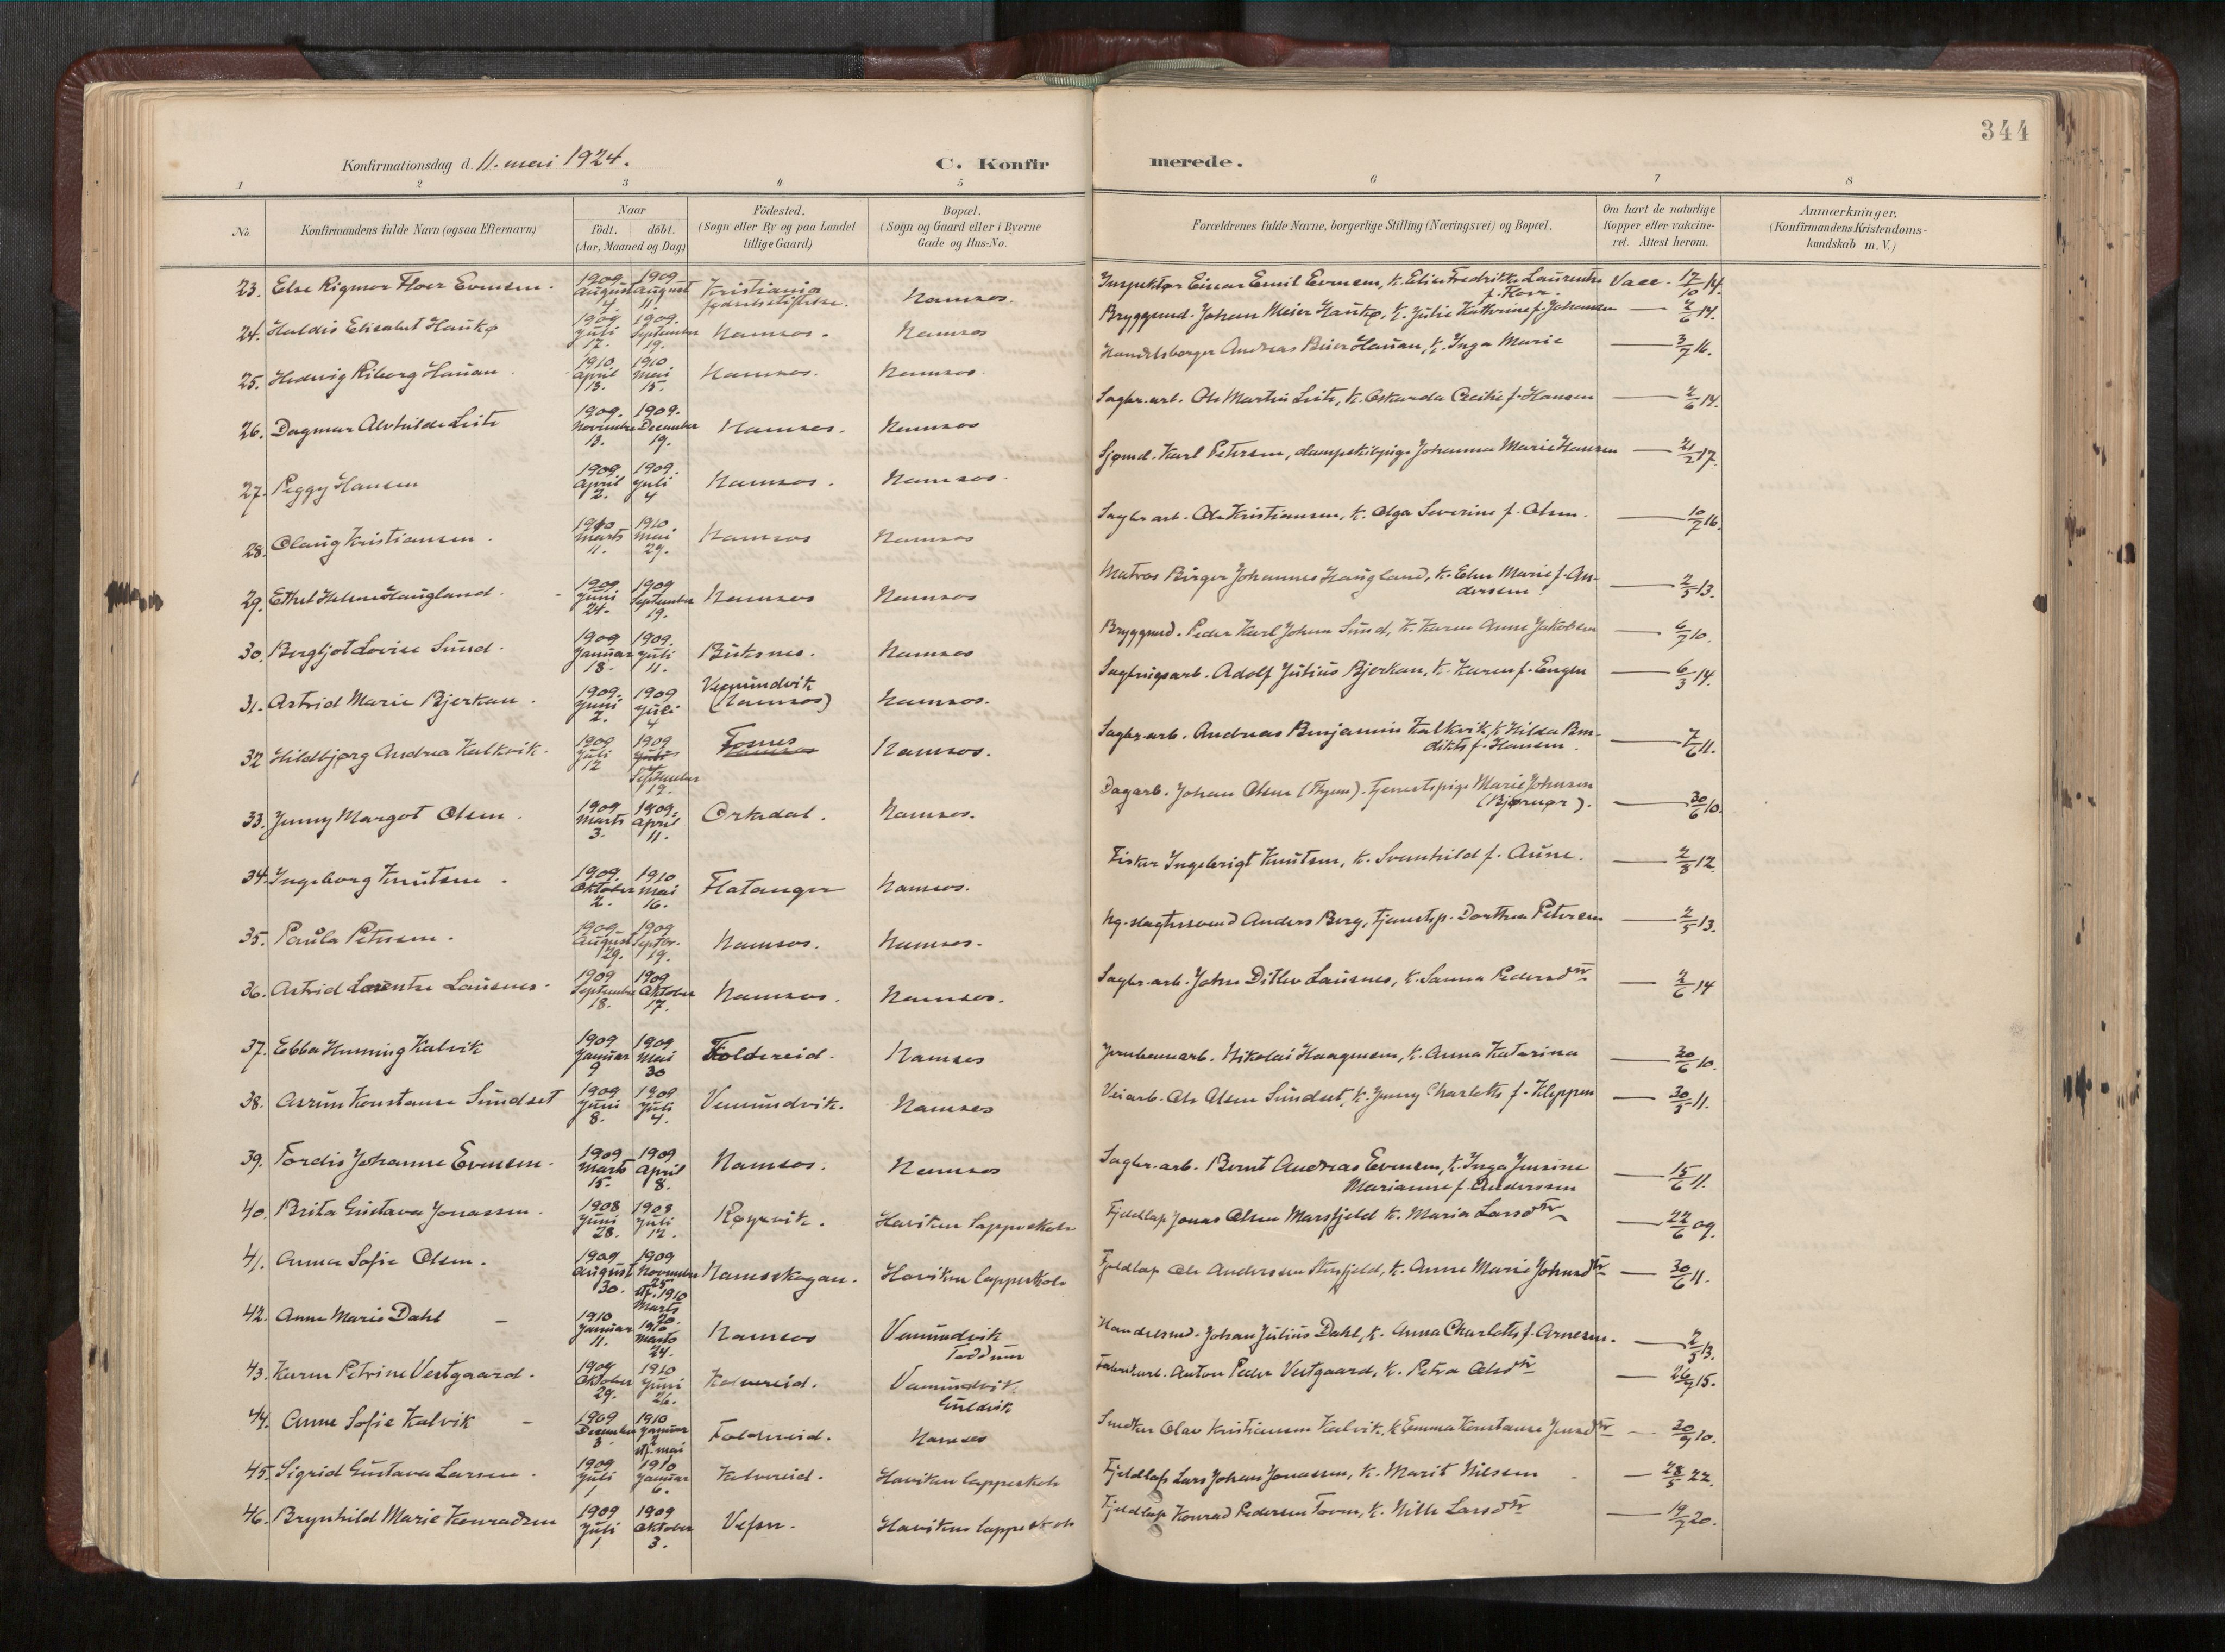 344
Konfirmationsdag d. 11. mai 1924.
C. Konfirmerede.
1 2 3 4 5 6 7 8
No.
Konfirmandens fulde Navn (ogsaa Efternavn)
Naar
födt. döbt.
(Aar, Maaned og Dag)
Födested.
(Sogn eller By og paa Landet
tillige Gaard)
Bopæl.
(Sogn og Gaard eller i Byerne
Gade og Hus-No.
Forældrenes fulde Navne, borgerlige Stilling (Næringsvei) og Bopæl.
Om havt de naturlige
Kopper eller vakcine-
ret. Attest herom.
Anmærkninger.
(Konfirmandens Kristendoms-
kundskab m. V.)
23. Else Rigmor Floer Evensen. 1909 August 4. 1909 August 11. Kristiania fødselsstiftelse. Namsos. Inspektør Einar Emil Evensen, k. Elise Fredrikke Laurentze Vacc. 17/10 14.
24. Haldis Elisabet Haukø 1909 Juli 17. 1909. September 19. Namsos. Namsos Bryggemd. Johan Meier Haukø, k. Julie Kathrine f. Johansen — 2/6 14.
25. Hedevig Riborg Hauan 1910. April 13. 1910 Mai 15. Namsos. Namsos Handelsborger Andreas Beier Hauan, k. Inga Marie — 3/7 16.
26. Dagmar Alvhilde Leite 1909. November 13. 1909. December 19. Namsos. Namsos Sagbr.arb. Ole Martin Leite, k. Oskarda Cecilie f. Hansen — 2/6 14.
27. Peggy Hansen 1909. April 2. 1909. Juli 4 Namsos. Namsos Sjømd. Karl Petersen, dampskibspige Johanna Marie Hansen — 21/2 17.
28. Olaug Kristiansen. 1910 Marts 11. 1910. Mai 29. Namsos Namsos Sagbr.arb. Ole Kristiansen, k. Olga Severine f. Olsen. — 10/7 16.
29. Ethel Helene Haugland. 1909 Juni 24. 1909 September 19. Namsos Namsos Matros Birger Johannes Haugland, k. Elen Marie f. An-
dersen — 2/5 13.
30. Bergljot Lovise Sund. 1909 Januar 18. 1909. Juli 11. Buksnes. Namsos Bryggemd. Peder Karl Johan Sund, k. Karen Anne Jakobsen — 6/7 10.
31. Astrid Marie Bjerkan. 1909. Juni 2. 1909 Juli 4 Vemundvik (Namsos) Namsos. Sagbrugsarb. Adolf Julius Bjerkan, k. Karen f. Engen — 6/3 14.
32 Hildbjørg Andrea Kalkvik. 1909 Juli 12 1909 Juli September 19. Fosnes Namsos. Sagbr.arb. Andreas Benjamin Kalkvik, k. Hilda Ben-
dikte f. Hansen. — 7/6 11.
33. Jenny Margot Olsen. 1909 Marts 3. 1909. April 11. Orkedal. Namsos. Dagarb. Johan Olsen (Thyem). Tjenestepige Marie Johnsen
(Bjørnør). — 30/6 10.
34. Ingeborg Knutsen. 1909. Oktober 2. 1910 Mai 16. Flatanger Namsos. Fisker Ingebrigt Knutsen, k. Svanhild f. Aune. — 2/8 12.
35. Paula Petersen. 1909 August 29. 1909 Septbr. 19. Namsos. Namsos. Ng. slagtersvend Anders Berg, tjenestep. Dorthea Petersen — 2/5 13.
36. Astrid Lorentse Lausnes. 1909 September 18. 1909 Oktober 17. Namsos. Namsos. Sagbr.arb. Johan Ditlev Lausnes, k. Sanna Pedersdtr — 2/6 14
37. Ebba Henning Kalvik 1909 Januar 9 1909 Mai 30 Foldereid. Namsos Jernbanearb. Nikolai Haagensen, k. Anna Katarina — 20/6 10.
38. Asrun Konstanse Sundset 1909 Juni 8. 1909 Juli 4. Vemundvik. Namsos Veiarb. Ole Olsen Sundset, k. Jenny Charlotte f. Kleppen — 30/5 11.
39. Tordis Johanne Evensen. 1909 Marts 15. 1909 April 8. Namsos. Namsos Sagbr.arb. Bernt Andreas Evensen, k. Inga Jensine
Marianne f. Anderssen — 15/6 11.
40. Brita Gustava Jonassen. 1908 Juni 28. 1908 Juli 12. Røyrvik. Haviken lappeskole Fjeldlap Jonas Olsen Marsfjeld k. Maria Larsdtr — 22/6 09.
41. Anna Sofie Olsen. 1909 August 30. 1909 November 25 stf. 1910 Marts 20. Namsskogan. Haviken lappeskole Fjeldlap Ole Anderssen Stensfjeld, k. Anne Marie Johnsdtr — 30/6 11.
42. Anne Marie Dahl 1910 Januar 11. 1910 Marts 24. Namsos Vemundvik Handelsmd. Johan Julius Dahl, k. Anna Charlotte f. Arnesen. — 2/5 13.
43. Karen Petrine Vestgaard. 1909 Oktober 29. 1910 Juni 26. Kolvereid. Vemundvik
Guldvik Fabrikarb. Anton Peder Vestgaard, k. Petra Olsdtr — 26/7 15.
44. Anne Sofie Kalvik 1909 December 3 1910 Januar 2 stf. mai Foldereid. Namsos Snedker Olav Kristiansen Kalvik, k. Emma Konstanse Jensdtr — 20/9 10.
45. Sigrid Gustava Larsen. 1909 Juli 1 1910 Januar 6. Kolvereid. Haviken lappeskole Fjeldlap Lars Johan Jonassen, k. Marit Nilssen — 28/5 22.
46. Brynhild Marie Konradsen 1909 Juli 1 1909 Oktober 3. Vefsn. Haviken lappeskole Fjeldlap Konrad Pedersen Toven, k. Nille Larsdtr — 19/7 20.